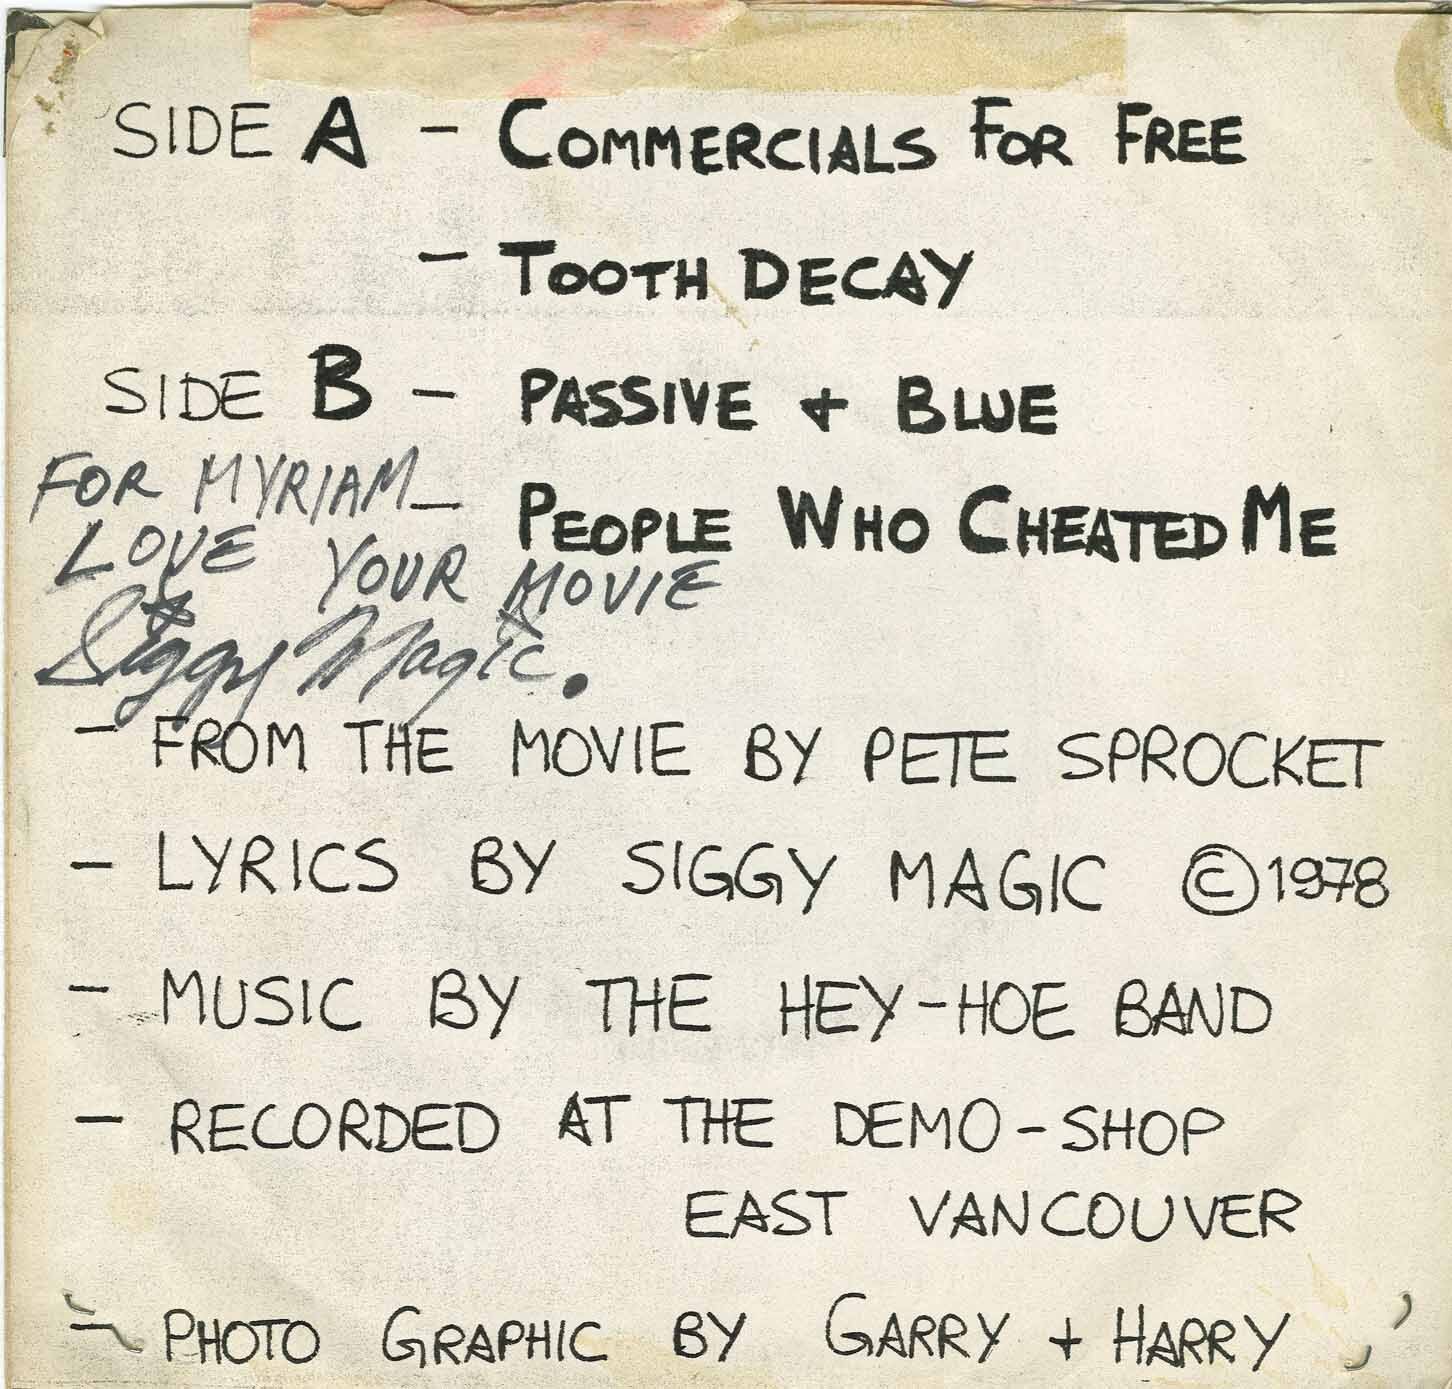 SIDE A - COMMERCIALS FOR FREE
- TOOTH DECAY
SIDE B - PASSIVE + BLUE
PEOPLE WHO CHEATED ME
FOR MYRIAM_
LOVE YOUR MOVIE
Siggy Magic.
- FROM THE MOVIE BY PETE SPROCKET
- LYRICS BY SIGGY MAGIC © 1978
- MUSIC BY THE HEY-HOE BAND
- RECORDED AT THE DEMO-SHOP
EAST VANCOUVER
- PHOTO GRAPHIC BY GARRY + HARRY